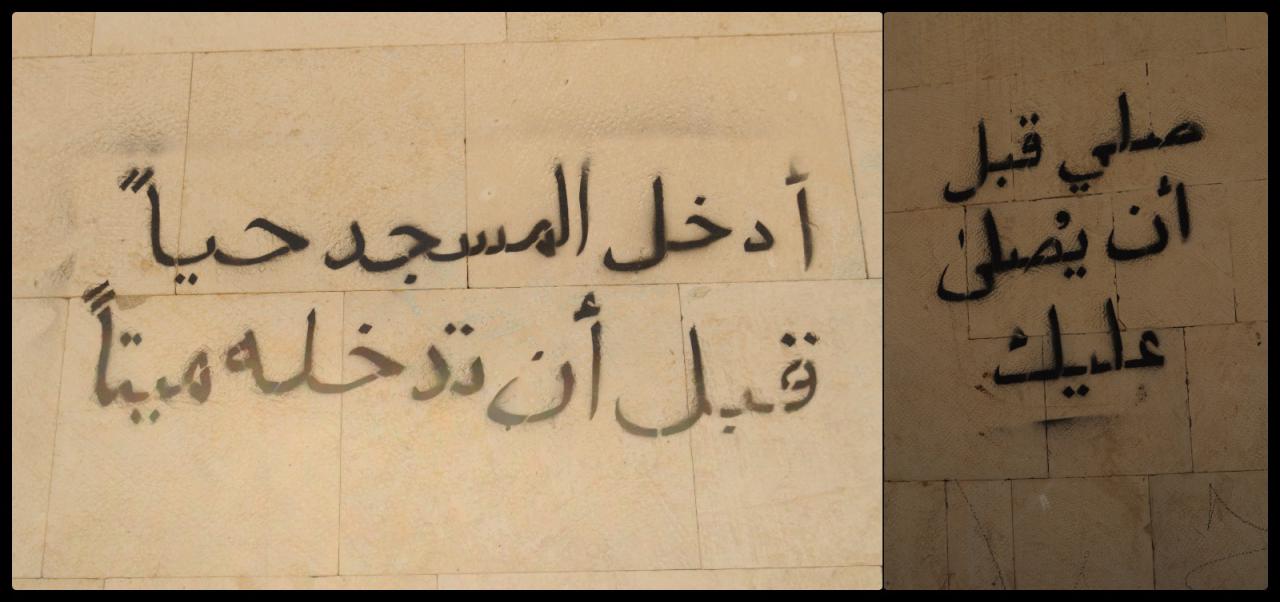 أدخل المسجد حياً
قبل أن تدخله ميتاً
صلي قبل
أن يُصلى
عليك